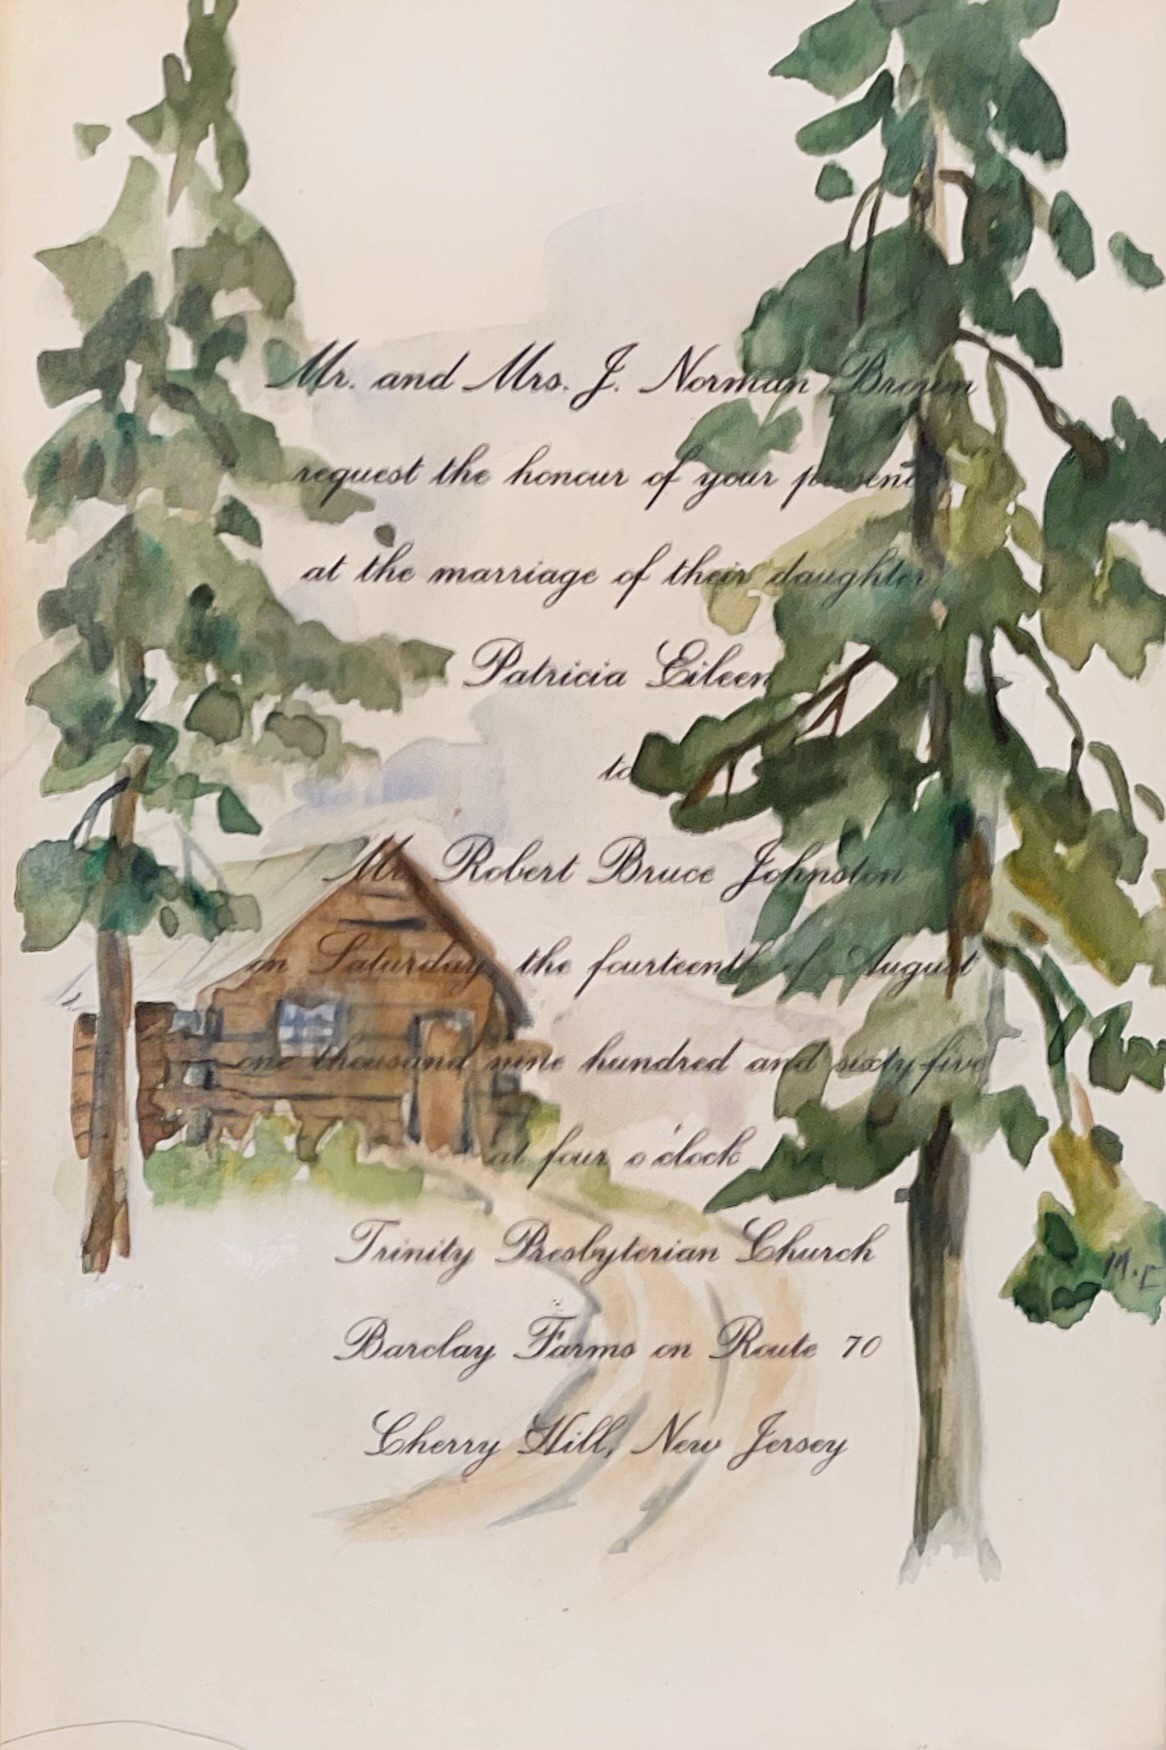 Mr. and Mrs. J. Norman Brown
request the honour of your presence
at the marriage of their daughter
Patricia Eileen
to
Mr. Robert Bruce Johnston
on Saturday, the fourteenth of August
one thousand nine hundred and sixty-five
at four o'clock
Trinity Presbyterian Church
Barclay Farms on Route 70
Cherry Hill, New Jersey